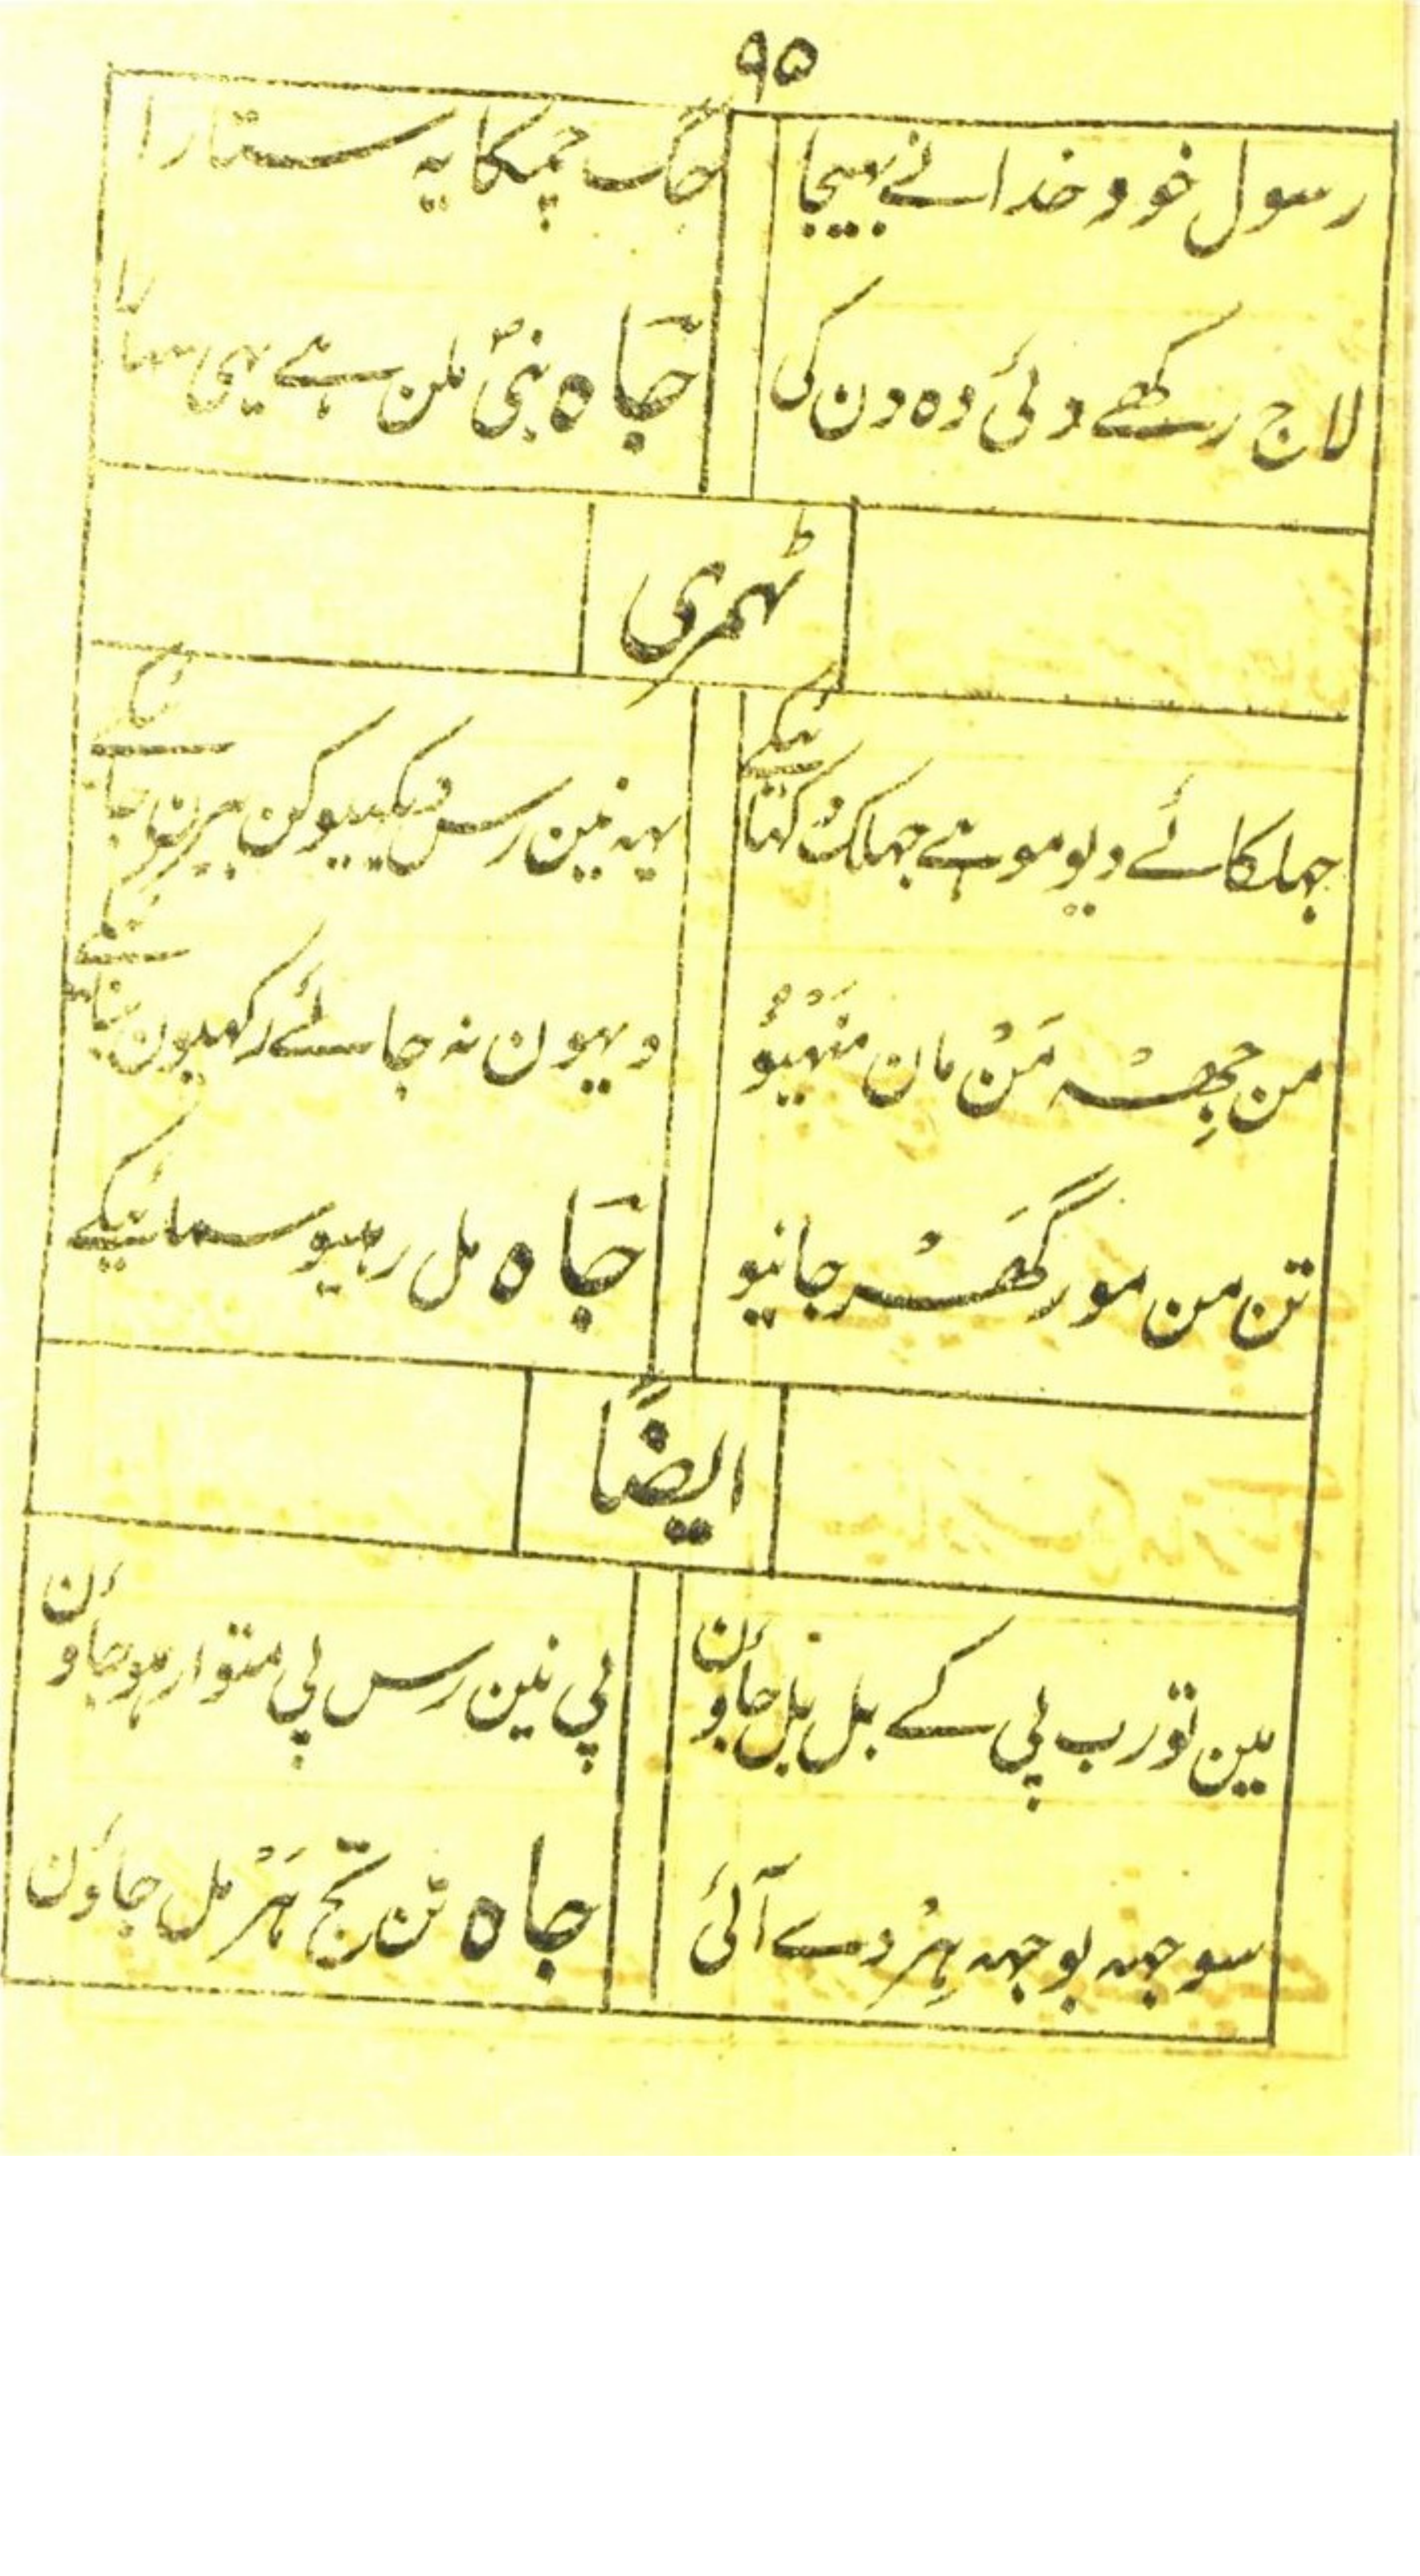 ۹۵
رسول خود خدا نے بہیجا جگ چمکا یہ ستارا
لاج رکھے دئی وہ دن کی جاہ نبیؐ ملن ہے یہی سہارا
ٹہمری
جہلکائے دیو موہے جہلک دکہائیکے یہہ نین رس
من جھِہ مَنْ مان منہیو ویہون نہ جائے رکہیون
تن من مور گھَر جانیو جاہ مل رہیو سمائیکے
ایضًا
مین تو رب پی کے بل بل جاوٗن پی نین رس پی متوار ہو جاوٗن
سوجہہ بوجہہ ہِرْدے آئی جاہ تن تج ہَرْ مل جاوٗن